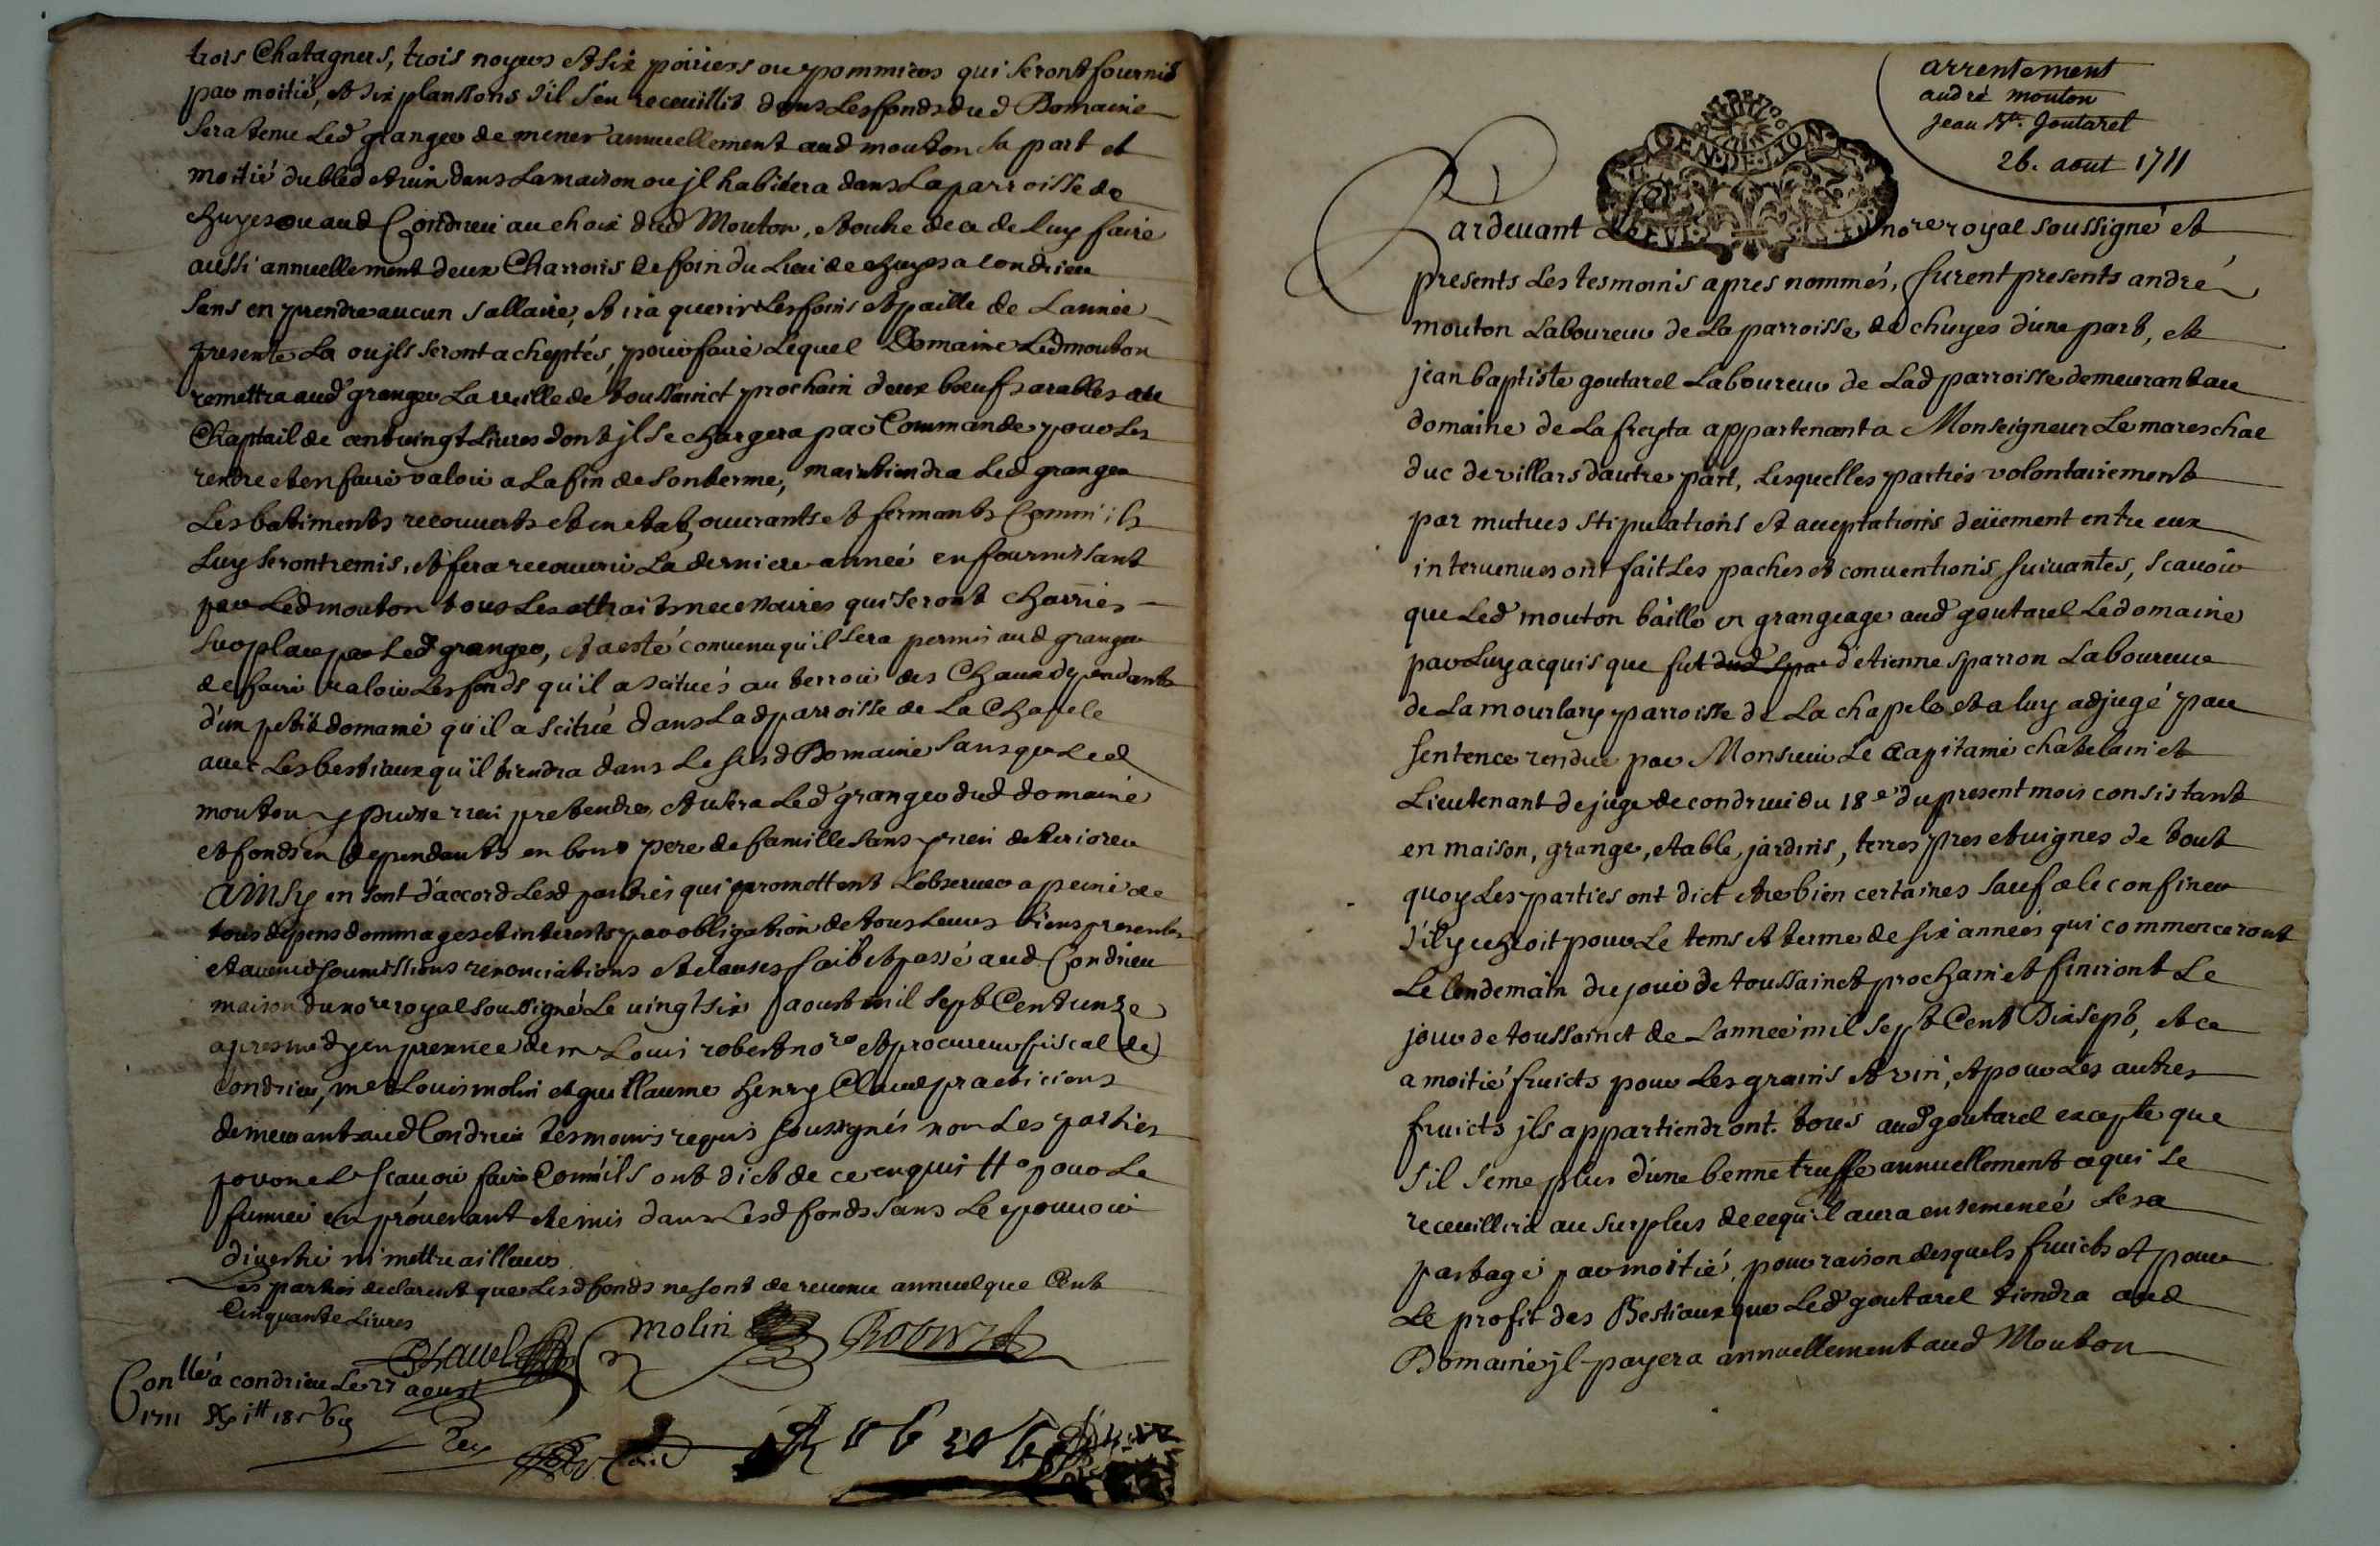 trois Chatagners, trois noyers et six poiriers ou pommiers qui seront fournis
par moitié, et six planssons s'il s'en receuillit dans les fonds dud Domaine
sera tenu led granger de mener annuellement aud mouton sa part et
moitié du bled et vin dans la maison ou jl habitera dans la parroisse de
chuyes ou aud Condrieu au choix dud Mouton, et outre de ce de luy faire
aussi annuellement deux Charrois de foin du lieu de chuyes a condrieu
sans en prendre aucun sallaire, et ira querir les foins et paille de l'année
presente la ou jls seront acheptés, pour faire lequel Domaine led mouton
remettra aud granger la veille de toussainct prochain deux bœufs arables au
Chaptail de cent vingt livres dont jl se chargera par Commande pour les
rendre et en faire valoir a la fin de son terme, maintiendra led granger
les batiments recouverts et en etat ouvrants et fermants Comm'ils
luy seront remis, et fera recouvrir la derniere année en fournissant
par led mouton tous les attraits necessaires qui seront charriés
sur place par led granger, et a esté convenu qu'il sera permis aud granger
de faire valoir les fonds qu'il a scitués au terroir des Chaux dependants
d'un petit domaine qu'il a scitué dans lad parroisse de La Chapele
avec les bestiaux qu'il tiendra dans le susd Domaine sans que led
mouton y puisse rien pretendre, et usera led granger dud domaine
et fonds en dependants en bon pere de famille sans y rien deteriorer
Ainsy en sont d'accord lesd parties qui promettent l'observer a peine de
tous depens dommages et interests par obligation de tous leurs biens presents
et avenir soumissions renonciations et clauses fait et passé aud Condrieu
maison du nore royal soussigné le vingt six aoust mil sept Cent unze
apres midy en presence de m Louis robert nore et procureur fiscal de
Condrieu, mes Louis molin et guillaume henry Clavel practiciens
demeurant aud Condrieu tesmoins requis soussignés non les parties
pour ne scavoir faire Comm'ils ont dict de ce enquis pour le
fumier en provenant et remis dans lesd fonds sans le pouvoir
divertir ni mettre ailleurs
Les parties declarent que lesd fonds ne sont de revenu annuel que Cent
Cinquante livres
Clavel molin Robert
Conllé a condrieu le 27 aoust
1711
arrentement
andré mouton
jean Bte. Goutarel
26. aout 1711
GEN.DE.LION
Pardevant le nore royal soussigné et
presents les tesmoins apres nommés, furent presents andré
mouton Laboureur de la parroisse de chuyes d'une part, et
jean baptiste goutarel Laboureur de lad parroisse demeurant au
domaine de la freyta appartenant a Monseigneur le mareschal
duc de villars dautre part, lesquelles parties volontairement
par mutues stipulations et acceptations deüement entre eux
intervenues ont fait les paches et conventions suivantes, scavoir
que led mouton baille en grangeage aud goutarel le domaine
par luy acquis que fut dud spa d'etienne sparron Laboureur
de Lamourlary parroisse de La chapele et a luy adjugé par
sentence rendue par Monsieur le Capitaine chatelain et
Lieutenant de juge de condrieu du 18e du present mois consistant
en maison, grange, etable, jardins, terres pres et vignes de tout
quoy les parties ont dict etre bien certaines sauf a le confiner
s'il y echoit pour le tems et terme de six années qui commenceront
le lendemain du jour de toussainct prochain et finiront le
jour de toussainct de L'année mil sept Cent Dix sept, et ce
a moitié fruicts pour les grains et vin, et pour les autres
fruicts jls appartiendront tous aud goutarel excepté que
s'il seme plus d'une benne truffe annuellement ce qui se
receuillira au surplus de ce qu'il aura ensemencé sera
partagé par moitié, pour raison desquels fruicts et pour
le profit des Bestiaux que led goutarel tiendra aud
Domaine jl payera annuellement aud Mouton